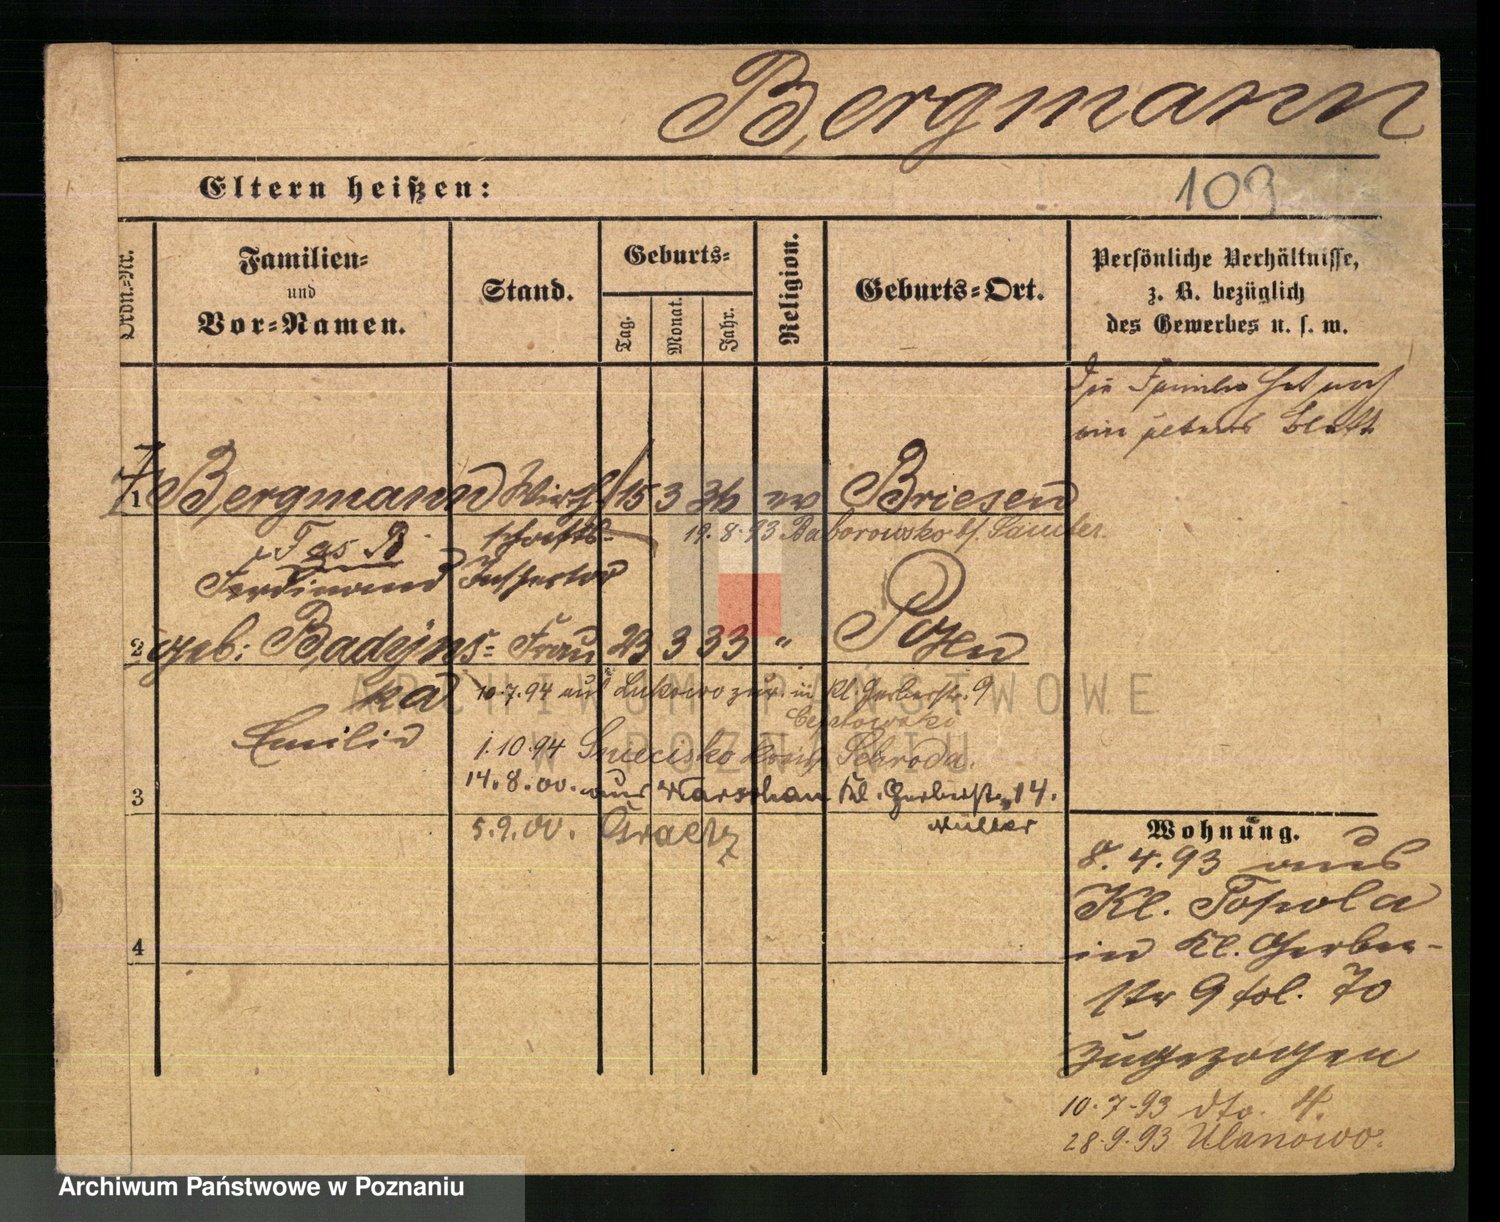 Bergmann
Eltern heißen:
109
Ordn.-Nr.
Familien-
und
Vor-Namen.
Stand.
Geburts-
Tag.
Monat.
Jahr.
Religion.
Geburts-Ort.
Persönliche Verhältnisse,
z. B. bezüglich
des Gewerbes u. s. w.
Die Familie hat noch
ein Blatt
1 Bergmann Wirth 15 3 36 ev Briesen
schafts-
19.8.93 Baborowsko b/ Samter
Ferdinand Inspector
2 geb: Badyns- Frau 23 3 33 " Posen
ka
10.7.94 aus Lukowo zur. in Kl. Gerberstr. 9
Emilie
1.10.94 Schroda.
3 14.8.00. aus Warschau Kl. Gerberstr. 14.
Müller
5.9.00. Graetz
4
Wohnung.
8.4.93 aus
Kl. Topola
in Kl. Gerber-
str 9 fol. 70
zugezogen
10.7.93 dto. 4.
28.9.93 Ulanowo.
ARCHIWUM PAŃSTWOWE
W POZNANIU
Archiwum Państwowe w Poznaniu